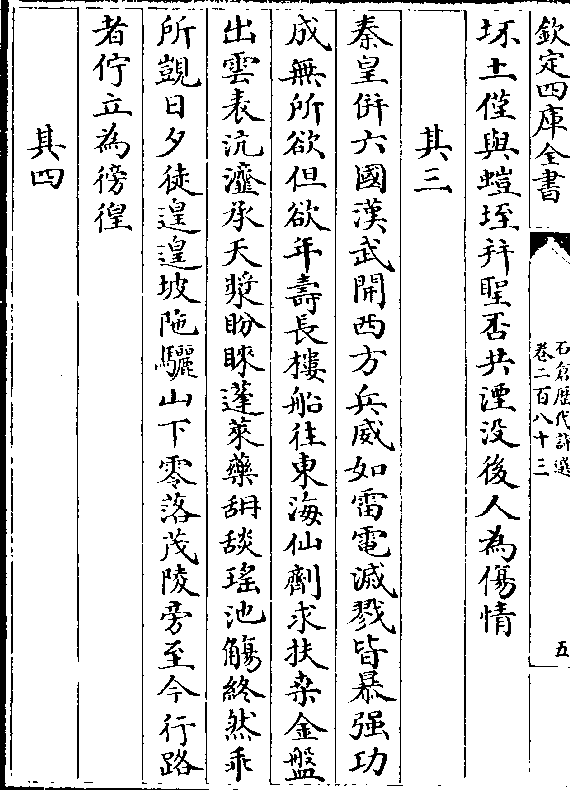 欽定四庫全書
石倉歷代詩選
卷二百八十三
五
坏土僅與螘垤并聖否共湮没後人為傷情
其三
秦皇併六國漢武開西方兵威如雷電滅戮皆暴强功
成無所欲但欲年壽長樓船往東海仙劑求扶桒金盤
出雲表沆瀣承天漿盼睞蓬萊藥䑙舕瑤池觴終然乖
所覬日夕徒遑遑坡陁驪山下零落茂陵旁至今行路
者佇立為徬徨
其四